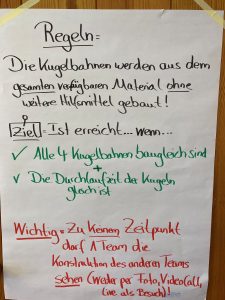 Regeln =
Die Kugelbahnen werden aus dem
gesamten verfügbaren Material ohne
weitere Hilfsmittel gebaut!
Ziel = Ist erreicht... wenn...
✓ Alle 4 Kugelbahnen baugleich sind
+
✓ Die Durchlaufzeit der Kugeln
gleich ist
Wichtig = Zu keinem Zeitpunkt
darf 1 Team die
Konstruktion des anderen Teams
sehen (Weder per Foto, VideoCall,
Live als Besuch)!